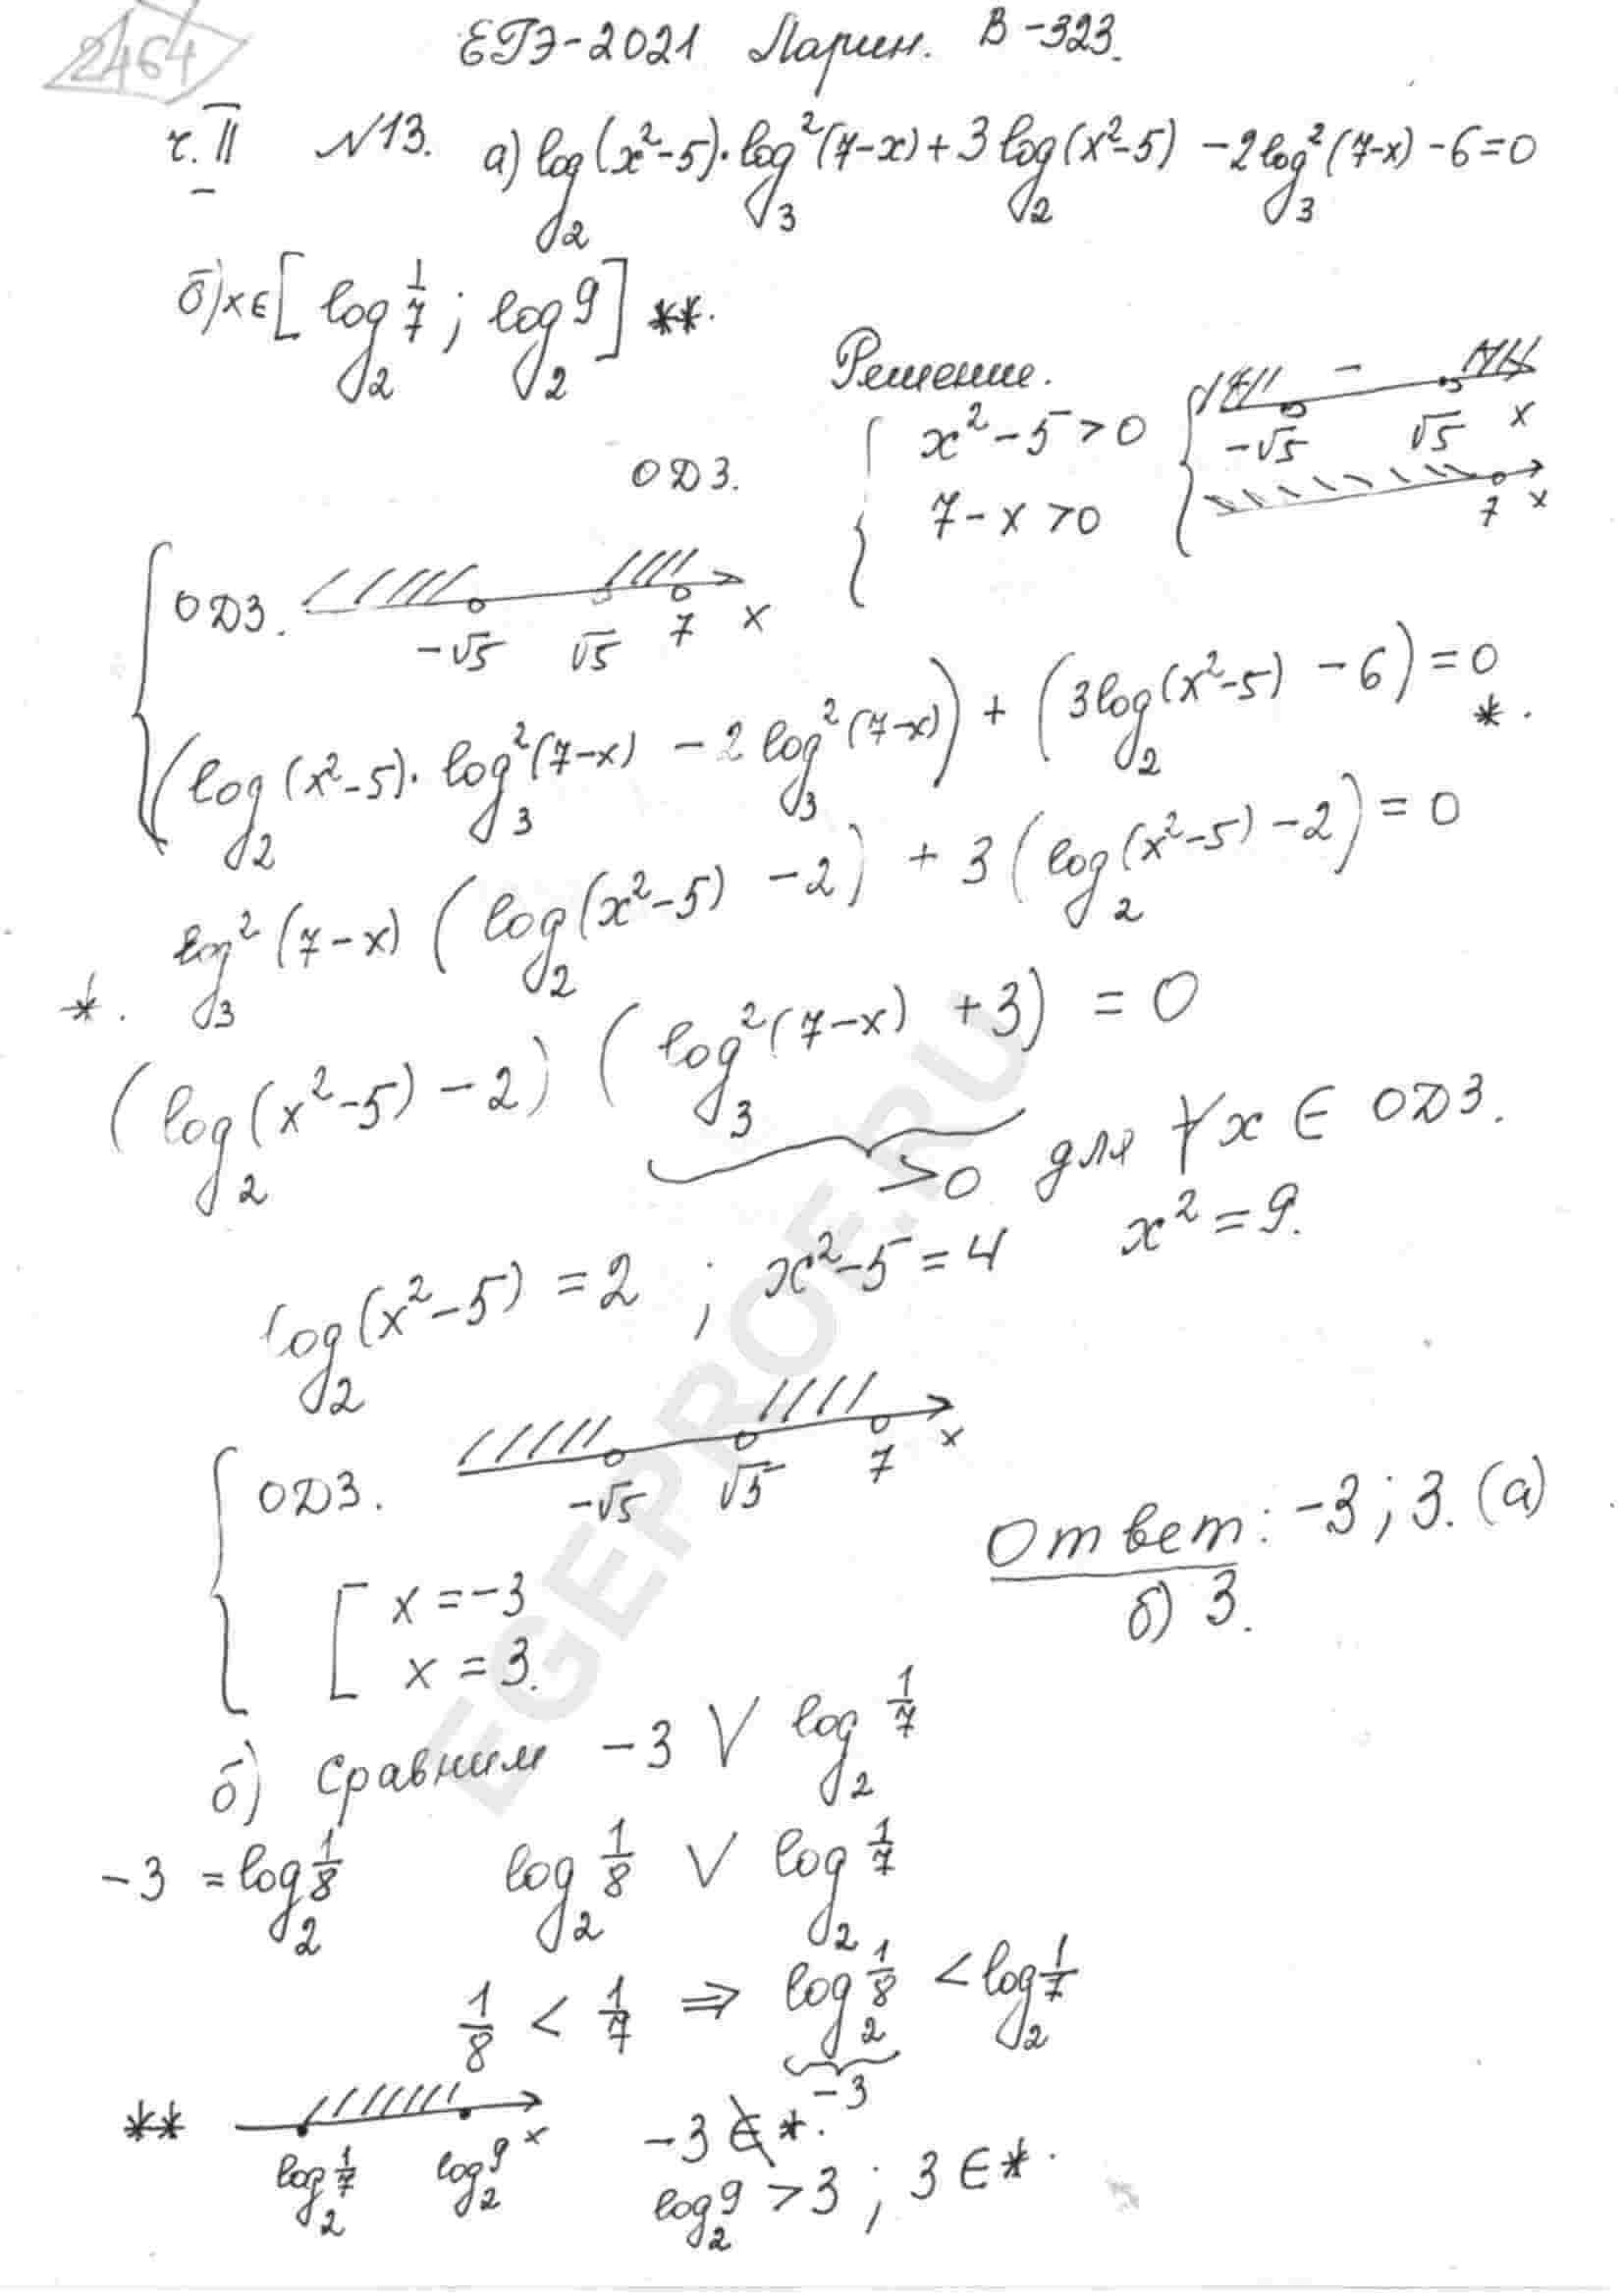 2464
ЕГЭ-2021 Ларин. В-323.
ч. II №13. а) log₂(x²-5)·log₃²(7-x)+3log₂(x²-5) -2log₃²(7-x) -6=0
б) x ∈ [log₂ 1/7 ; log₂ 9] **.
Решение.
ОДЗ. { x²-5>0 { -√5 - √5 x
7-x>0 7 x
{ ОДЗ. -√5 √5 7 x
(log₂(x²-5)·log₃²(7-x) -2log₃²(7-x)) + (3log₂(x²-5) -6) = 0 *.
*. log₃²(7-x)(log₂(x²-5) -2) + 3(log₂(x²-5) -2) = 0
(log₂(x²-5) -2)(log₃²(7-x) +3) = 0
>0 для ∀x ∈ ОДЗ.
log₂(x²-5) = 2 ; x²-5=4 x²=9.
{ ОДЗ. -√5 √5 7 x
[ x=-3
x=3.
Ответ: -3 ; 3. (а)
б) 3.
б) Сравним -3 V log₂ 1/7
-3 = log₂ 1/8 log₂ 1/8 V log₂ 1/7
1/8 < 1/7 ⇒ log₂ 1/8 < log₂ 1/7
-3
** log₂ 1/7 log₂ 9 x -3 ∉ *.
log₂ 9 > 3 ; 3 ∈ *.
EGEPROF.RU